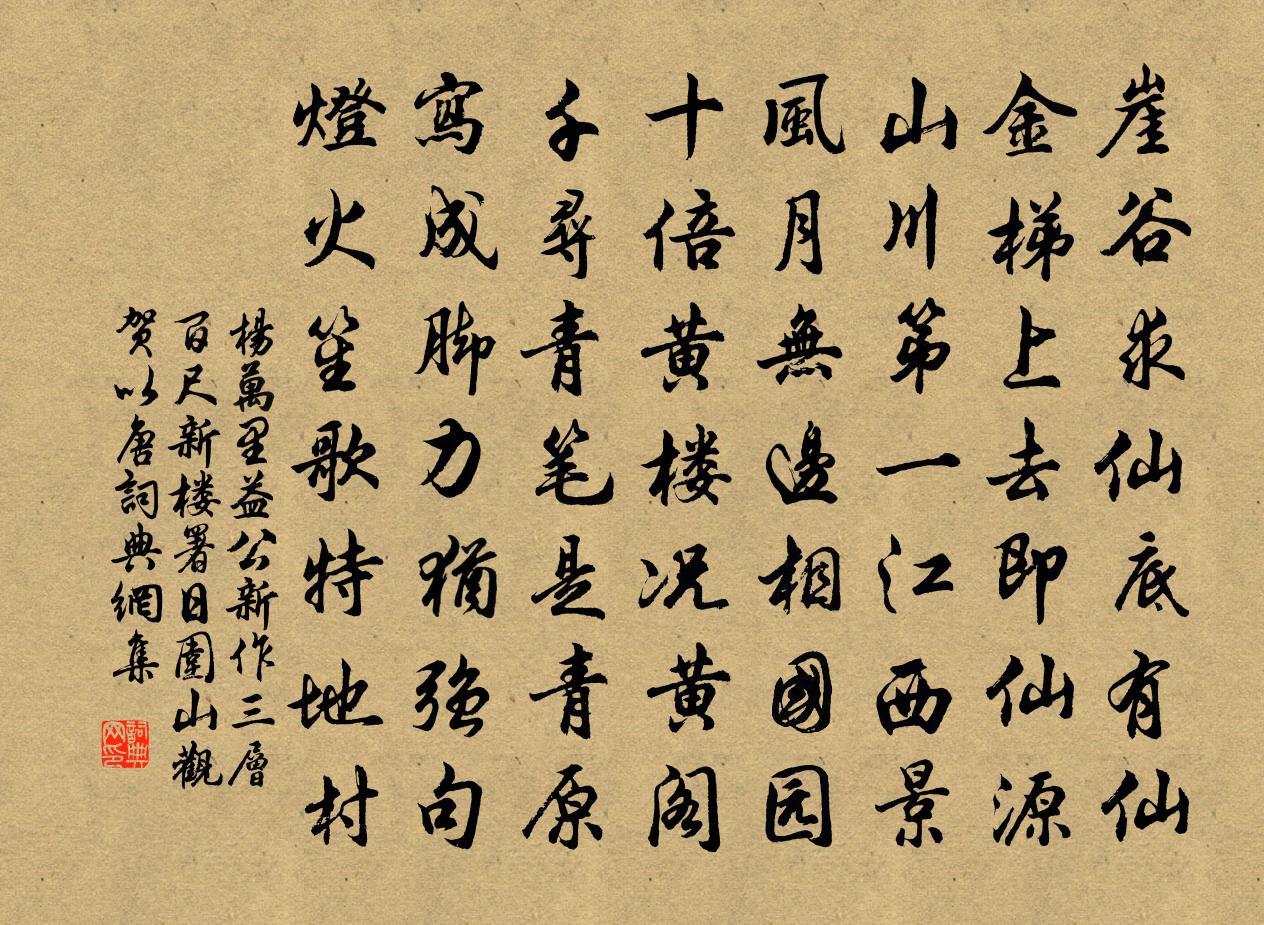 崖谷求仙底有仙
金梯上去即仙源
山川第一江西景
風月無邊相國园
十倍黄楼况黄阁
千尋青笔是青原
寫成脚力猶強句
燈火笙歌特地村
楊萬里益公新作三層
百尺新楼署日圍山觀
贺以唐詞典網集
詞典
网印